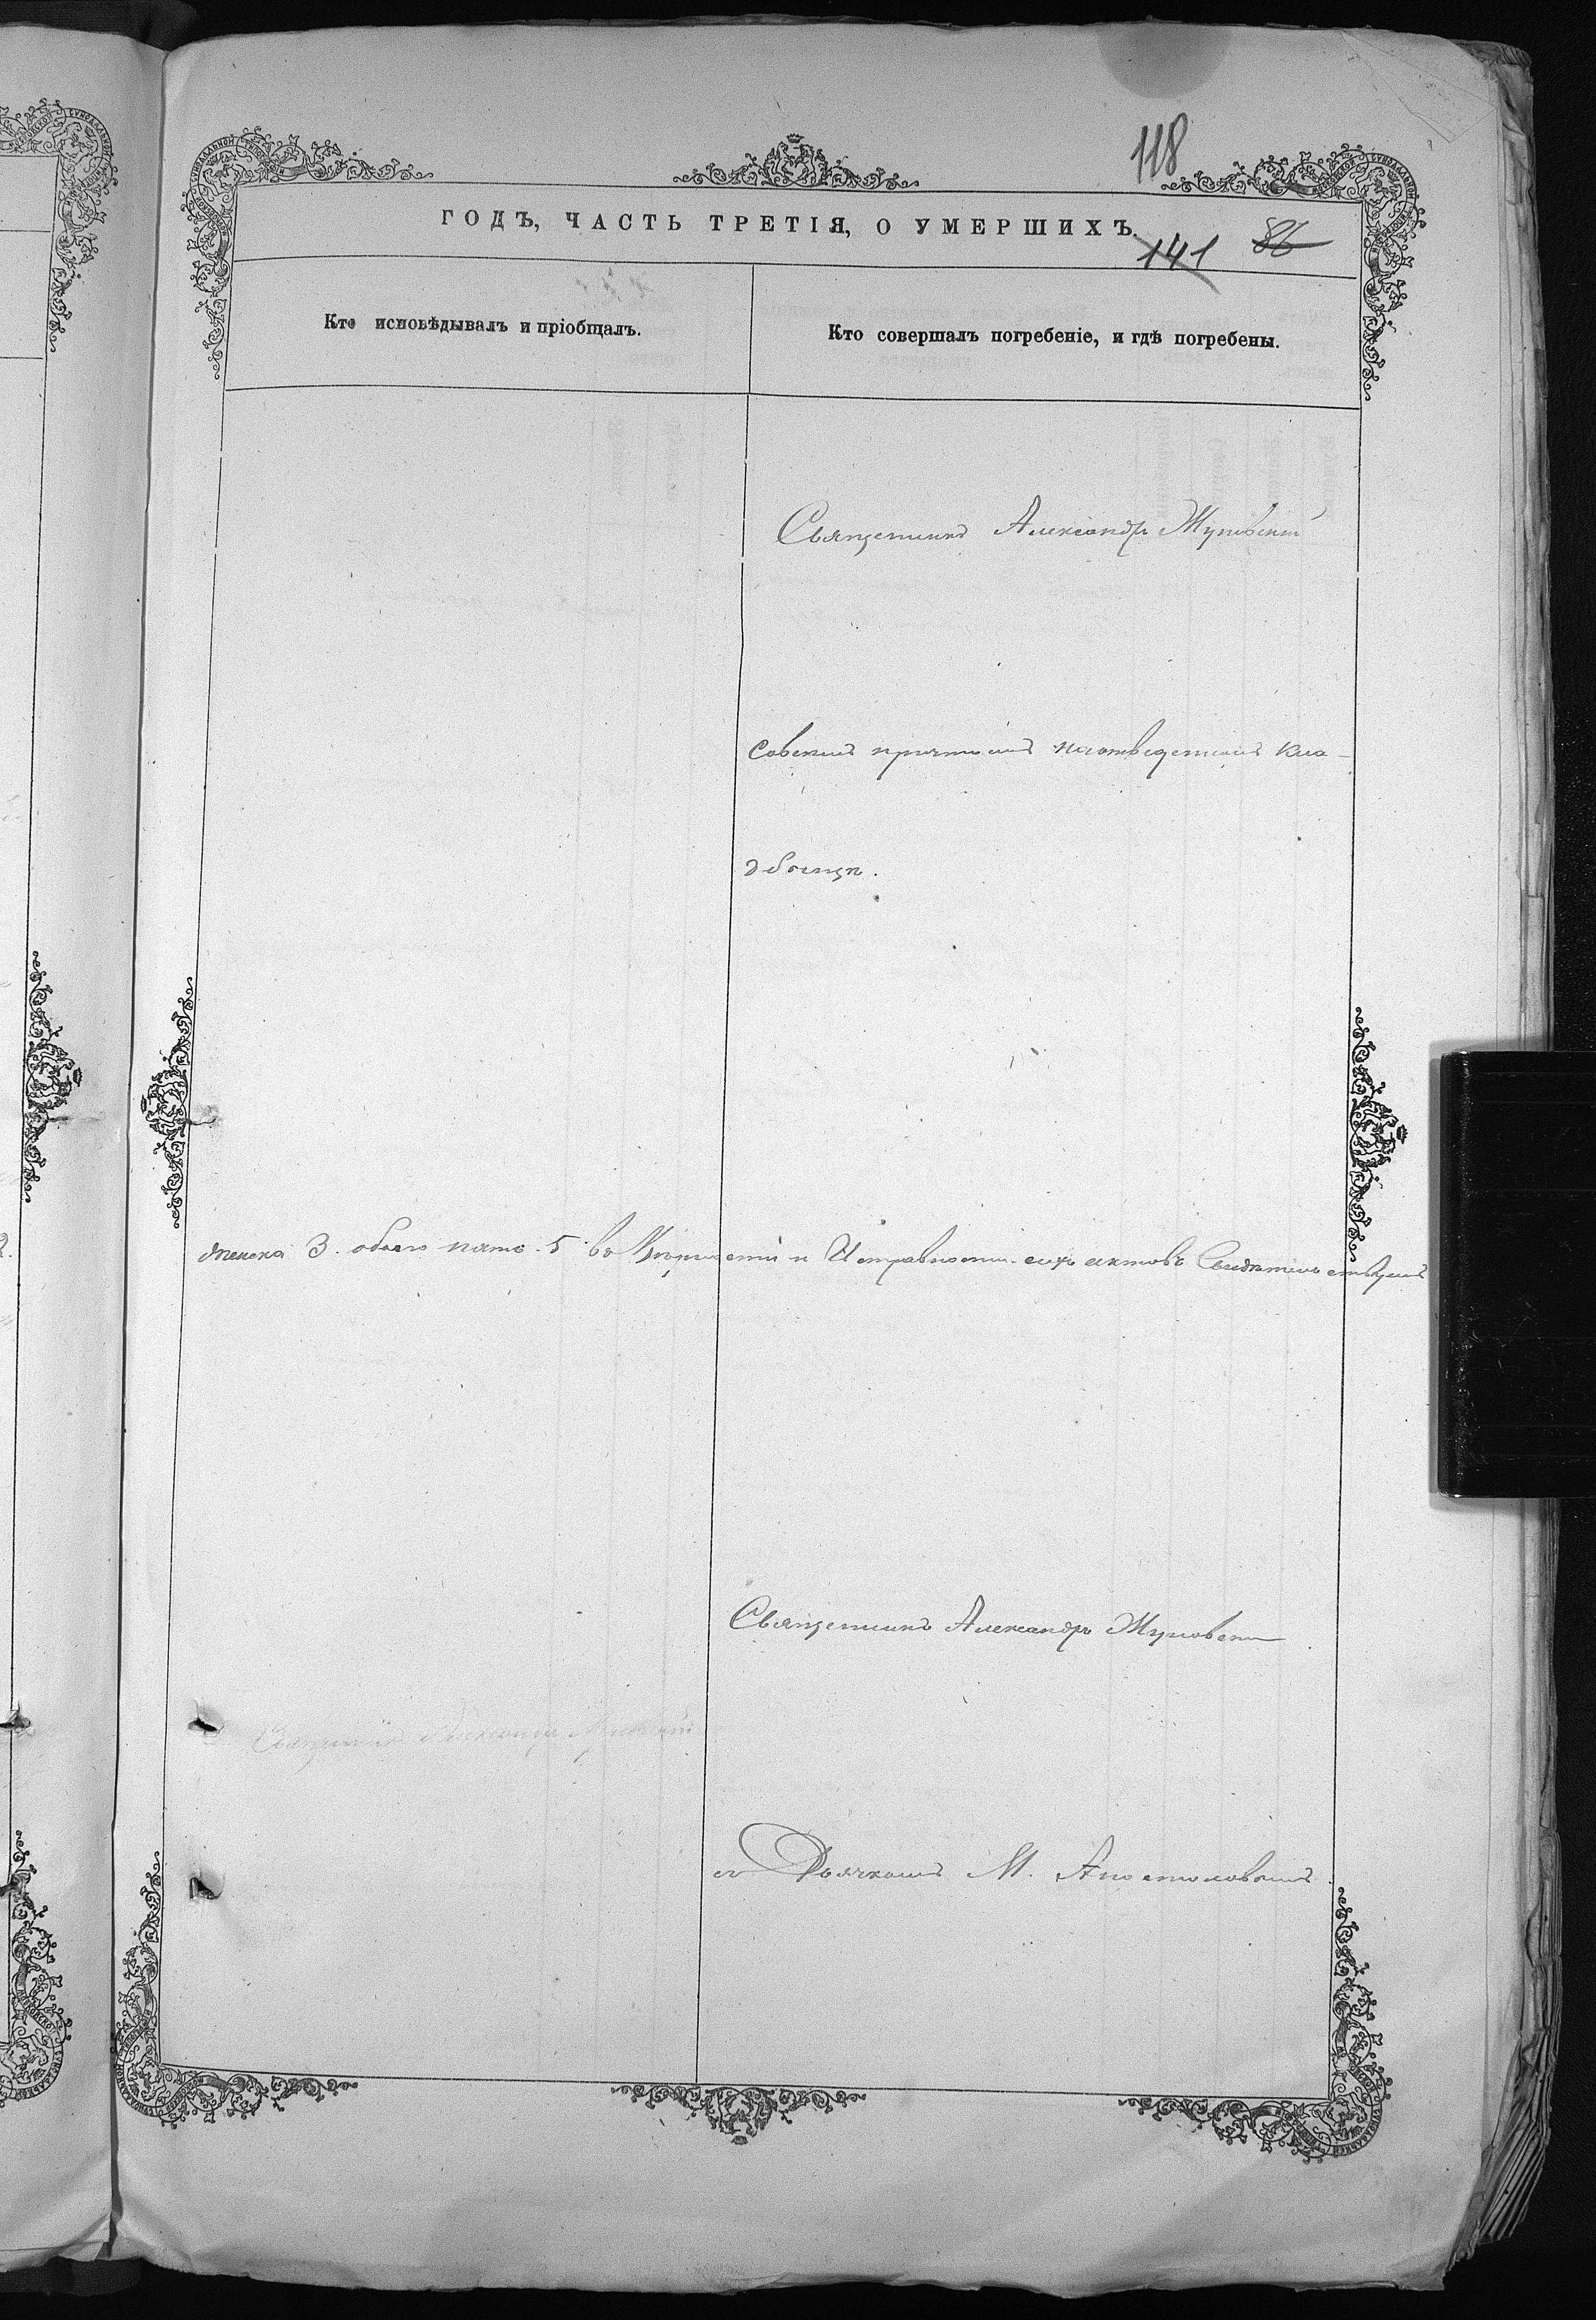 118
ГОДЪ, ЧАСТЬ ТРЕТІЯ, О УМЕРШИХЪ.
141 86
Кто исповѣдывалъ и пріобщалъ.
Кто совершалъ погребеніе, и гдѣ погребены.
Священникъ Александръ
совскимъ причтомъ на отведенномъ кла-
дбищѣ.
женска 3. обоего пять. 5. въ и Исправности сихъ актовъ Свидѣтельствуемъ
Священникъ Александръ
Священникъ Александръ
съ Дьячкомъ М. Апостоловымъ.